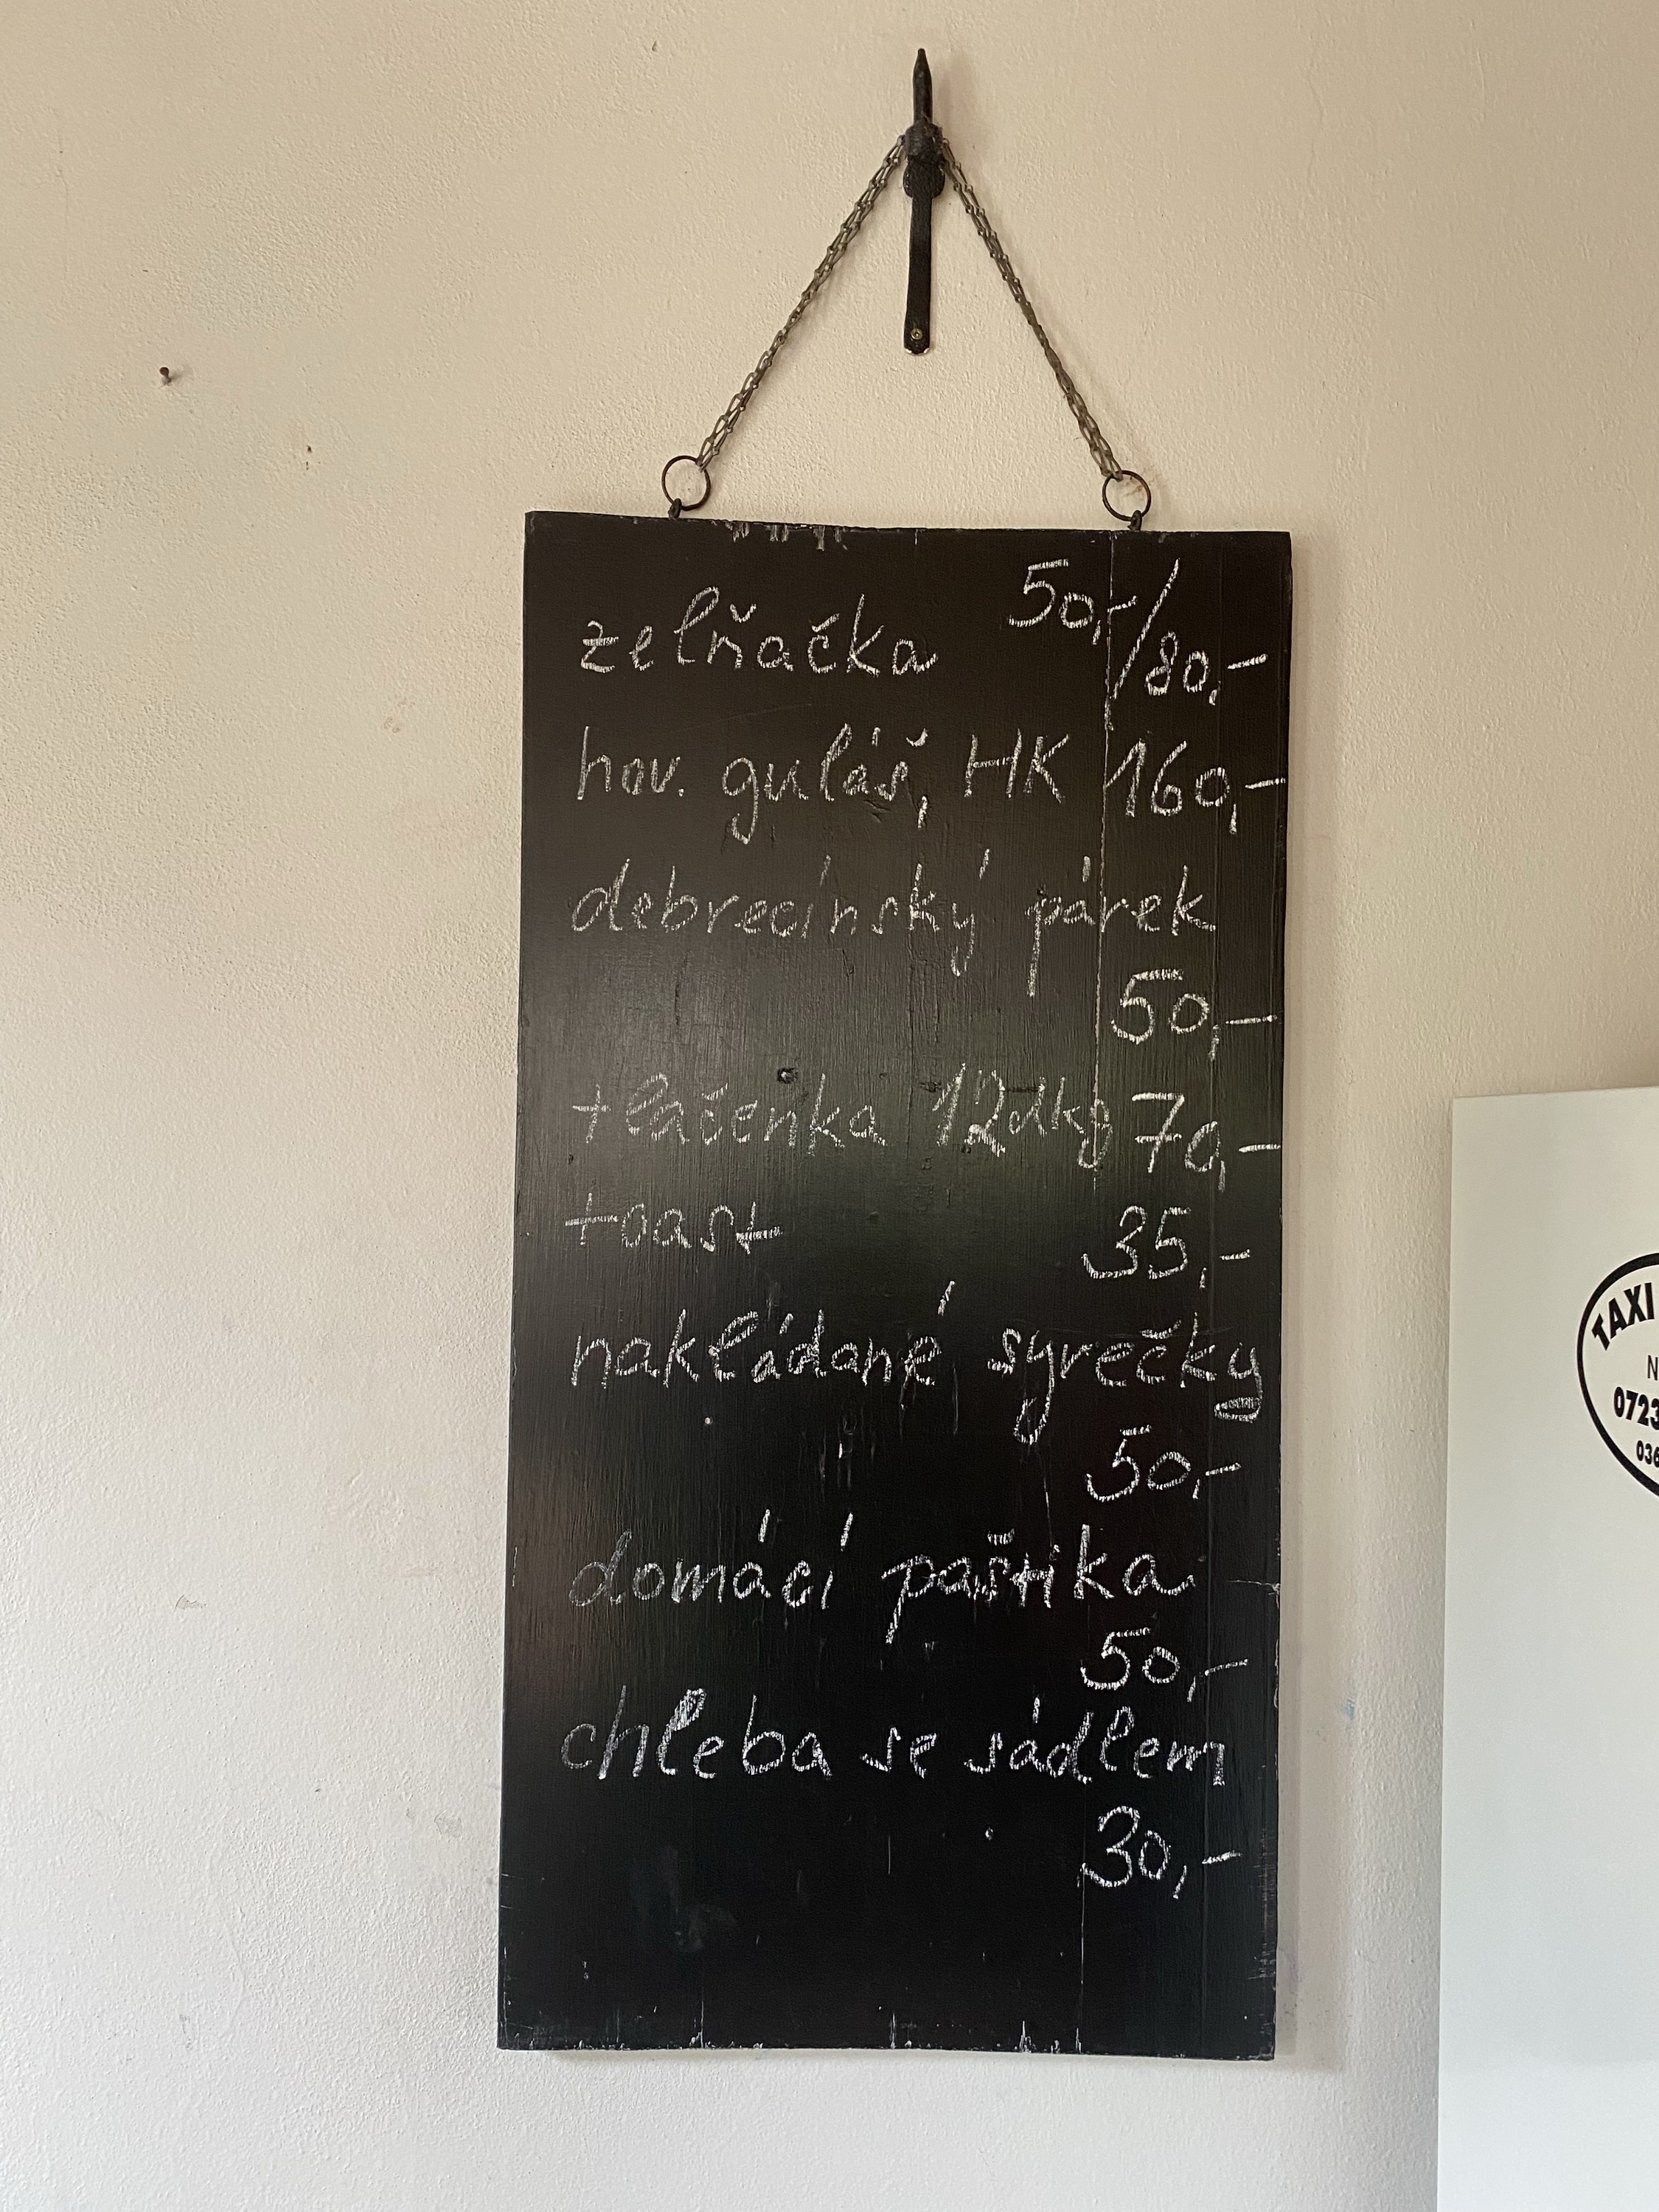 zelňačka 50,-/80,-
hov. guláš, HK 160,-
debrecínský párek
50,-
tlačenka 12dkg 70,-
toast 35,-
nakládané syrečky
50,-
domácí paštika
50,-
chleba se sádlem
30,-
TAXI
N
0723
036